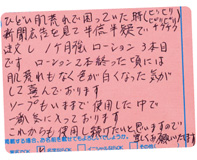 ひどい肌荒れで困っていた時
ピリピリ
ヒリヒリ
新聞広告を見て半信半疑で
注文し1ケ月強 ローション3本目
です ローション2本終った頃には
肌荒れもなく色が白くなった気が
して喜んでおります
ソープもいままで使用した中で
一番気に入っております
これからも使用し続けたいと思いますので
宜しくお願いします